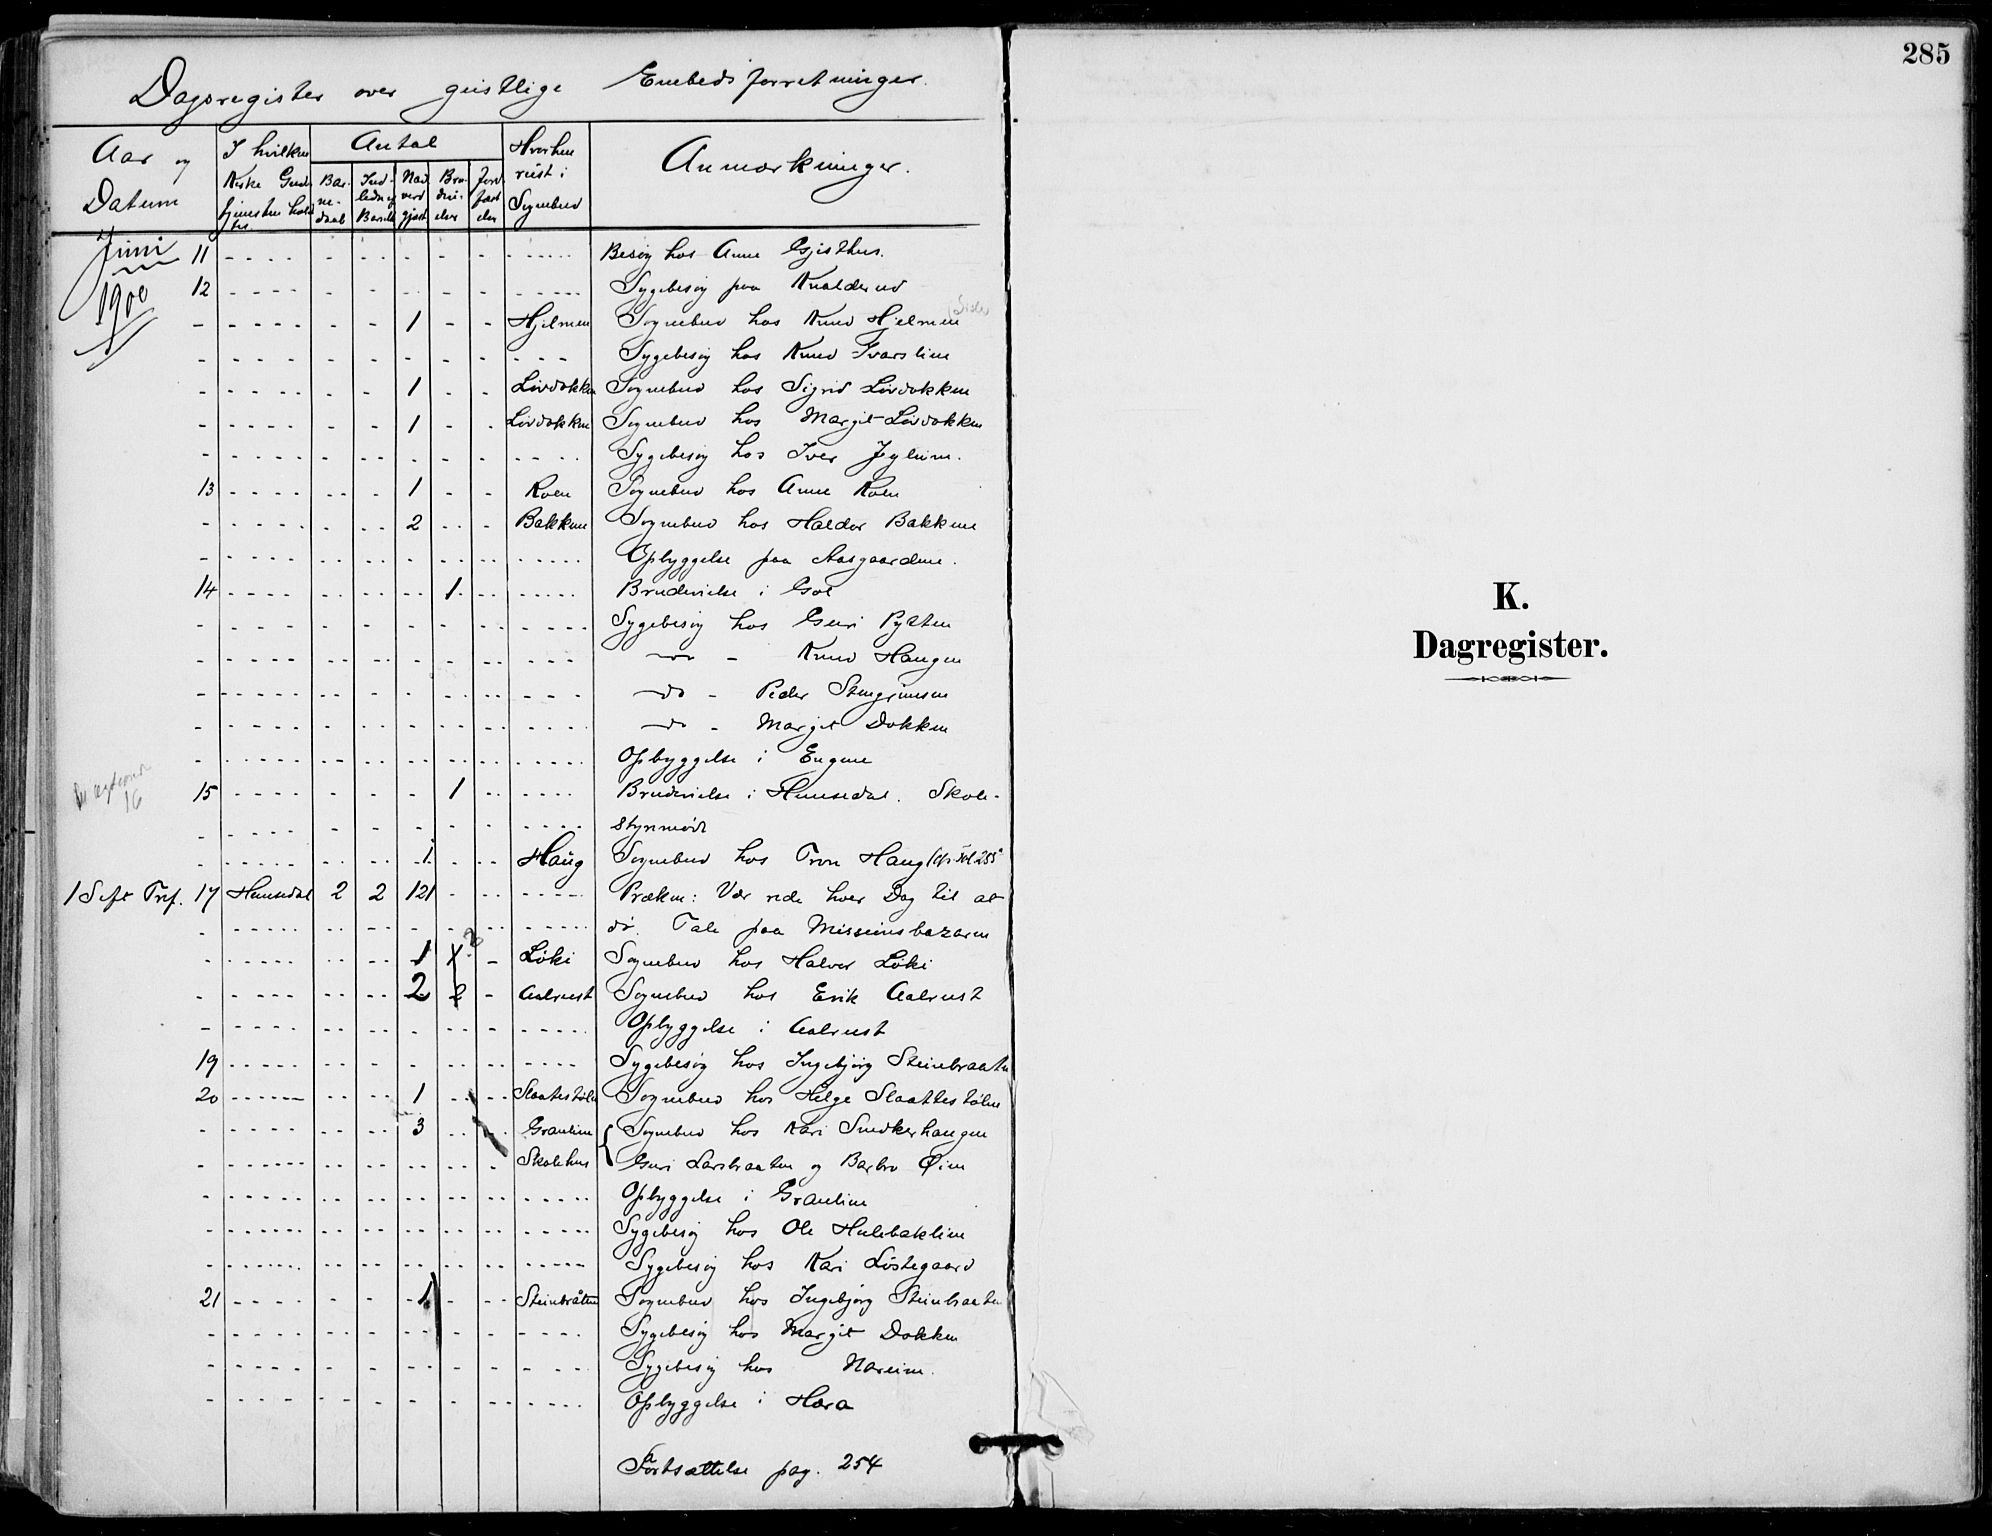 Dagsregister over geistlige Embedsforretninger.
Aar og Datum
I hvilken Kirke Guds tjenesten holdtes
Antal
Barnedaab
Indledn af Barselk
Nadverdgjæst
Brudvielser
Jordfæstelser
Hvorhen reist i Sognebud
Anmærkninger.
Juni 1900
11 Besøg hos Anne Gjesthus.
12 Sygebesøg paa Kvalderud
1 Hjelmen Sognebud hos Knud Hjelmen
Sygebesøg hos Knud Ivarslien
1 Løvdokken Sognebud hos Sigrid Løvdokken
1 Løvdokken Sognebud hos Margit Løvdokken
Sygebesøg hos Iver Jeglein.
13 1 Roen Sognebud hos Anne Roen
2 Bakkene Sognebud hos Haldor Bakkene
Opbyggelse paa Aasgaardene.
14 1 Brudevielse i Gol
Sygebesøg hos Guri Pytten
do - Knud Haugen
do - Peder Stengrimsen
do - Margit Dokken
Opbyggelse i Engene
16
15 1 Brudevielse i Hemsedal. Skole-
styrmøde
1 Haug Sognebud hos Tron Haug (cfr. fol 255
1 Seft Tref. 17 Hemsedal 2 2 121 Præken: Vær rede hver Dag til at
dø. Tale paa Missionsbazaren
1 Løki Sognebud hos Halvor Løki
2 2 Aalrust Sognebud hos Erik Aalrust
Opbyggelse i Aalrust
19 Sygebesøg hos Ingebjørg Steinbraaten
20 1 Slaatestølen Sognebud hos Helge Slaattestølen
3 Grønlien Sognebud hos Kari Snedkerhaugen
Skolehus Guri Larsbraaten og Barbro Øien
Opbyggelse i Grønlien
Sygebesøg hos Ole Hulebaklien
Sygebesøg hos Kari Løstegaard
21 1 Steinbråten Sognebud hos Ingebjørg Steinbraaten
Sygebesøg hos Margit Dokken
Sygebesøg hos Nareim.
Opbyggelse i Hæra
Fortsættelse pag. 254
285
K.
Dagregister.